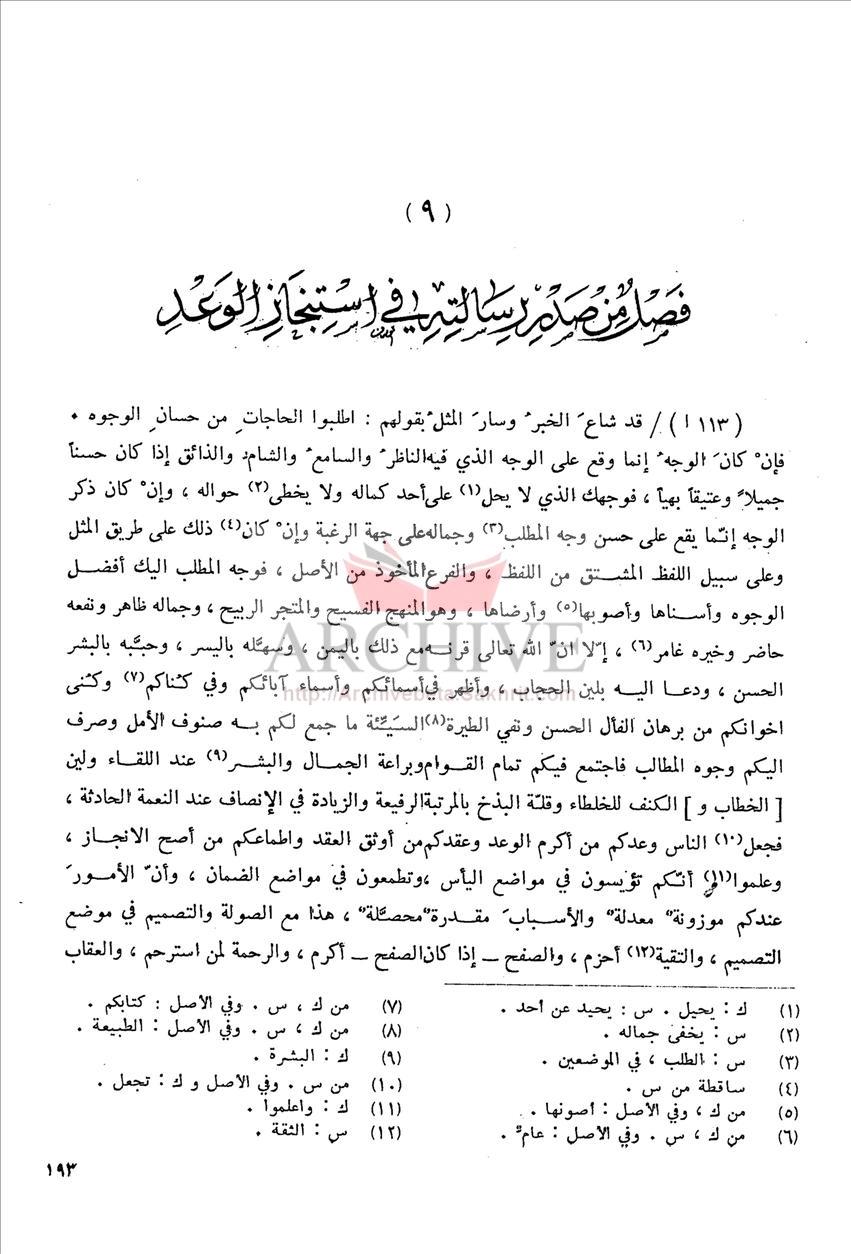 ( ٩ )
فَصْلٌ مِنْ صَدْرِ رِسَالَتِهِ فِي اسْتِنْجَازِ الوَعْدِ
( ١١٣ أ ) / قد شاعَ الخبرُ وسارَ المثلُ بقولهم : اطلبوا الحاجاتِ من حسانِ الوجوه .
فإنْ كانَ الوجهُ إنما وقع على الوجه الذي فيه الناظرُ والسامعُ والشامُ والذائق إذا كان حسناً
جميلاً وعتيقاً بهياً ، فوجهك الذي لا يحل(١) على أحد كماله ولا يخطى(٢) حواله ، وإنْ كان ذكر
الوجه إنّما يقع على حسن وجه المطلب(٣) وجماله على جهة الرغبة وإنْ كان(٤) ذلك على طريق المثل
وعلى سبيل اللفظ المشتق من اللفظ ، والفرع المأخوذ من الأصل ، فوجه المطلب اليك أفضل
الوجوه وأسناها وأصوبها(٥) وأرضاها ، وهو المنهج الفسيح والمتجر الربيح ، وجماله ظاهر ونفعه
حاضر وخيره غامر(٦) ، إلّا انّ الله تعالى قرنه مع ذلك باليمن ، وسهَّله باليسر ، وحبَّبه بالبشر
ARCHIVE
الحسن ، ودعا اليه بلين الحجاب ، وأظهر في أسمائكم وأسماء آبائكم وفي كناكم(٧) وكنى
http://Archivebeta.Sakhrit.com
اخوانكم من برهان الفأل الحسن ونفي الطيرة(٨) السَيِّئة ما جمع لكم به صنوف الأمل وصرف
اليكم وجوه المطالب فاجتمع فيكم تمام القوام وبراعة الجمال والبشر(٩) عند اللقاء ولين
[ الخطاب و ] الكنف للخلطاء وقلّة البذخ بالمرتبة الرفيعة والزيادة في الإنصاف عند النعمة الحادثة ،
فجعل(١٠) الناس وعدكم من أكرم الوعد وعقدكم من أوثق العقد واطماعكم من أصح الانجاز ،
وعلموا(١١) أنّكم تؤيسون في مواضع اليأس ، وتطمعون في مواضع الضمان ، وأنّ الأمورَ
عندكم موزونةٌ معدلةٌ والأسبابَ مقدرةٌ محصَّلةٌ ، هذا مع الصولة والتصميم في موضع
التصميم ، والتقية(١٢) أحزم ، والصفح ــ إذا كان الصفح ــ أكرم ، والرحمة لمن استرحم ، والعقاب
(١) ك : يحيل . س : يحيد عن أحد .
(٢) س : يخفى جماله .
(٣) س : الطلب ، في الموضعين .
(٤) ساقطة من س .
(٥) من ك ، وفي الأصل : أصونها .
(٦) من ك ، س . وفي الأصل : عامٌّ .
(٧) من ك ، س . وفي الأصل : كتابكم .
(٨) من ك ، س . وفي الأصل : الطبيعة .
(٩) ك : البشرة .
(١٠) من س . وفي الأصل و ك : تجعل .
(١١) ك : واعلموا .
(١٢) س : الثقة .
١٩٣